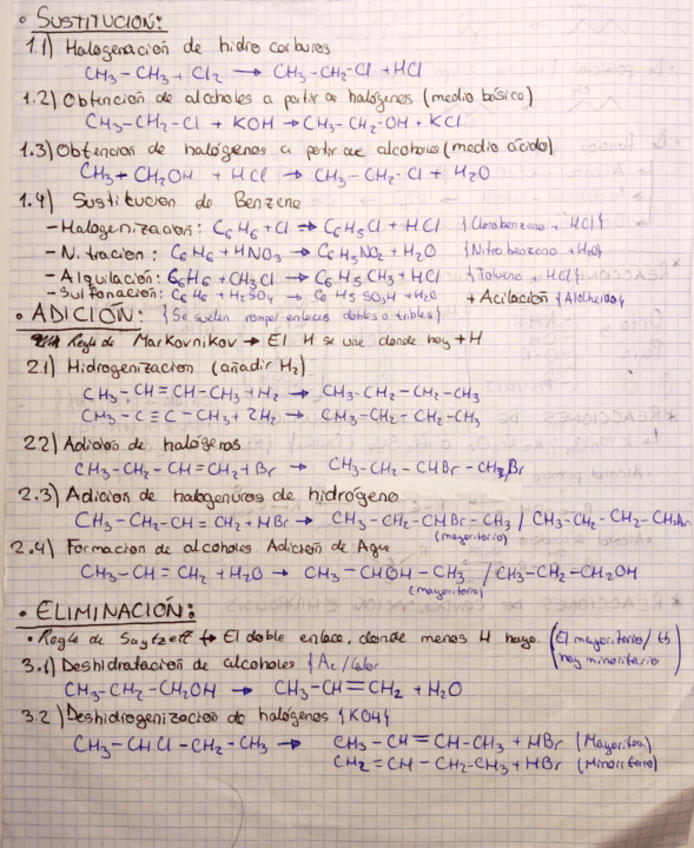 • SUSTITUCION:
1.1) Halogenación de hidrocarburos
CH₃-CH₃ + Cl₂ → CH₃-CH₂-Cl + HCl
1.2) Obtención de alcoholes a partir de halógenos (medio básico)
CH₃-CH₂-Cl + KOH → CH₃-CH₂-OH + KCl
1.3) Obtencion de halógenos a partir de alcoholes (medio ácido)
CH₃+CH₂OH + HCl → CH₃-CH₂-Cl + H₂O
1.4) Sustitucion de Benzeno
- Halogenización: C₆H₆ + Cl → C₆H₅Cl + HCl {Clorobenzeno + HCl}
- Nitracion: C₆H₆ + HNO₃ → C₆H₅NO₂ + H₂O {Nitrobenzeno + H₂O}
- Alquilación: C₆H₆ + CH₃Cl → C₆H₅CH₃ + HCl {Tolueno + HCl}
- Sulfonación: C₆H₆ + H₂SO₄ → C₆H₅SO₃H + H₂O + Acilación
• ADICION: {Se suelen romper enlaces dobles o triples}
Regla de Markovnikov → El H se une donde hay + H
2.1) Hidrogenizacion (añadir H₂)
CH₃-CH=CH-CH₃ + H₂ → CH₃-CH₂-CH₂-CH₃
CH₃-C≡C-CH₃ + 2H₂ → CH₃-CH₂-CH₂-CH₃
2.2) Adición de halógenos
CH₃-CH₂-CH=CH₂ + Br → CH₃-CH₂-CHBr-CH₂Br
2.3) Adicion de halogenuros de hidrógeno
CH₃-CH₂-CH=CH₂ + HBr → CH₃-CH₂-CHBr-CH₃ / CH₃-CH₂-CH₂-CH₂Br
(mayoritario)
2.4) Formacion de alcoholes. Adicion de Agua
CH₃-CH=CH₂ + H₂O → CH₃-CHOH-CH₃ / CH₃-CH₂-CH₂OH
(mayoritario)
• ELIMINACIÓN:
• Regla de Saytzeff → El doble enlace, donde menos H haya. (El mayoritario / tb
hay minoritario)
3.1) Deshidratación de alcoholes {Ac/Calor
CH₃-CH₂-CH₂OH → CH₃-CH=CH₂ + H₂O
3.2) Deshidrogenizacion de halógenos {KOH}
CH₃-CHCl-CH₂-CH₃ → CH₃-CH=CH-CH₃ + HBr (Mayoritario)
CH₂=CH-CH₂-CH₃ + HBr (Minoritario)